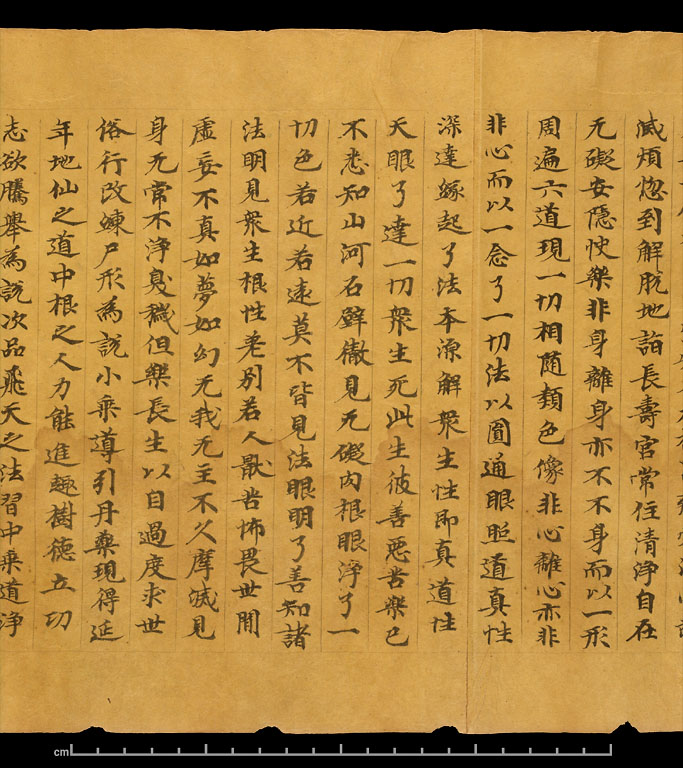 滅煩惚到解脱地詣長壽官常住清淨自在
无礙安隱快樂非身離身亦不不身而以一形
周遍六道現一切相随類色像非心離心亦非
非心而以一念了一切法以圓通眼照道真性
深達緣起了法本源解衆生性即真道性
天眼了達一切衆生死此生彼善惡苦樂已
不悉知山河石壁徹見无礙内根眼淨了一
切色若近若遠莫不皆見法眼明了善知諸
法明見衆生根性差别若人猒苦怖畏世間
虛妄不真如夢如幻无我无主不久摩滅見
身无常不淨臭穢但樂長生以自過度求世
俗行改練尸形為說小乘導引丹藥現得延
年地仙之道中根之人力能進趣樹德立功
志欲騰舉為說次品飛天之法習中乘道淨